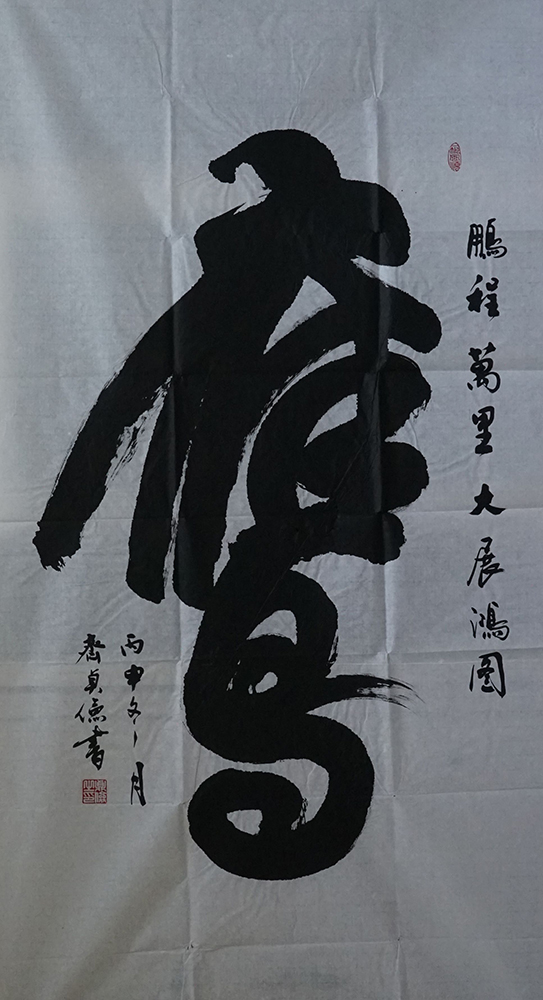 鵬程萬里大展鴻图
鷹
丙申冬月
齊貞儉書